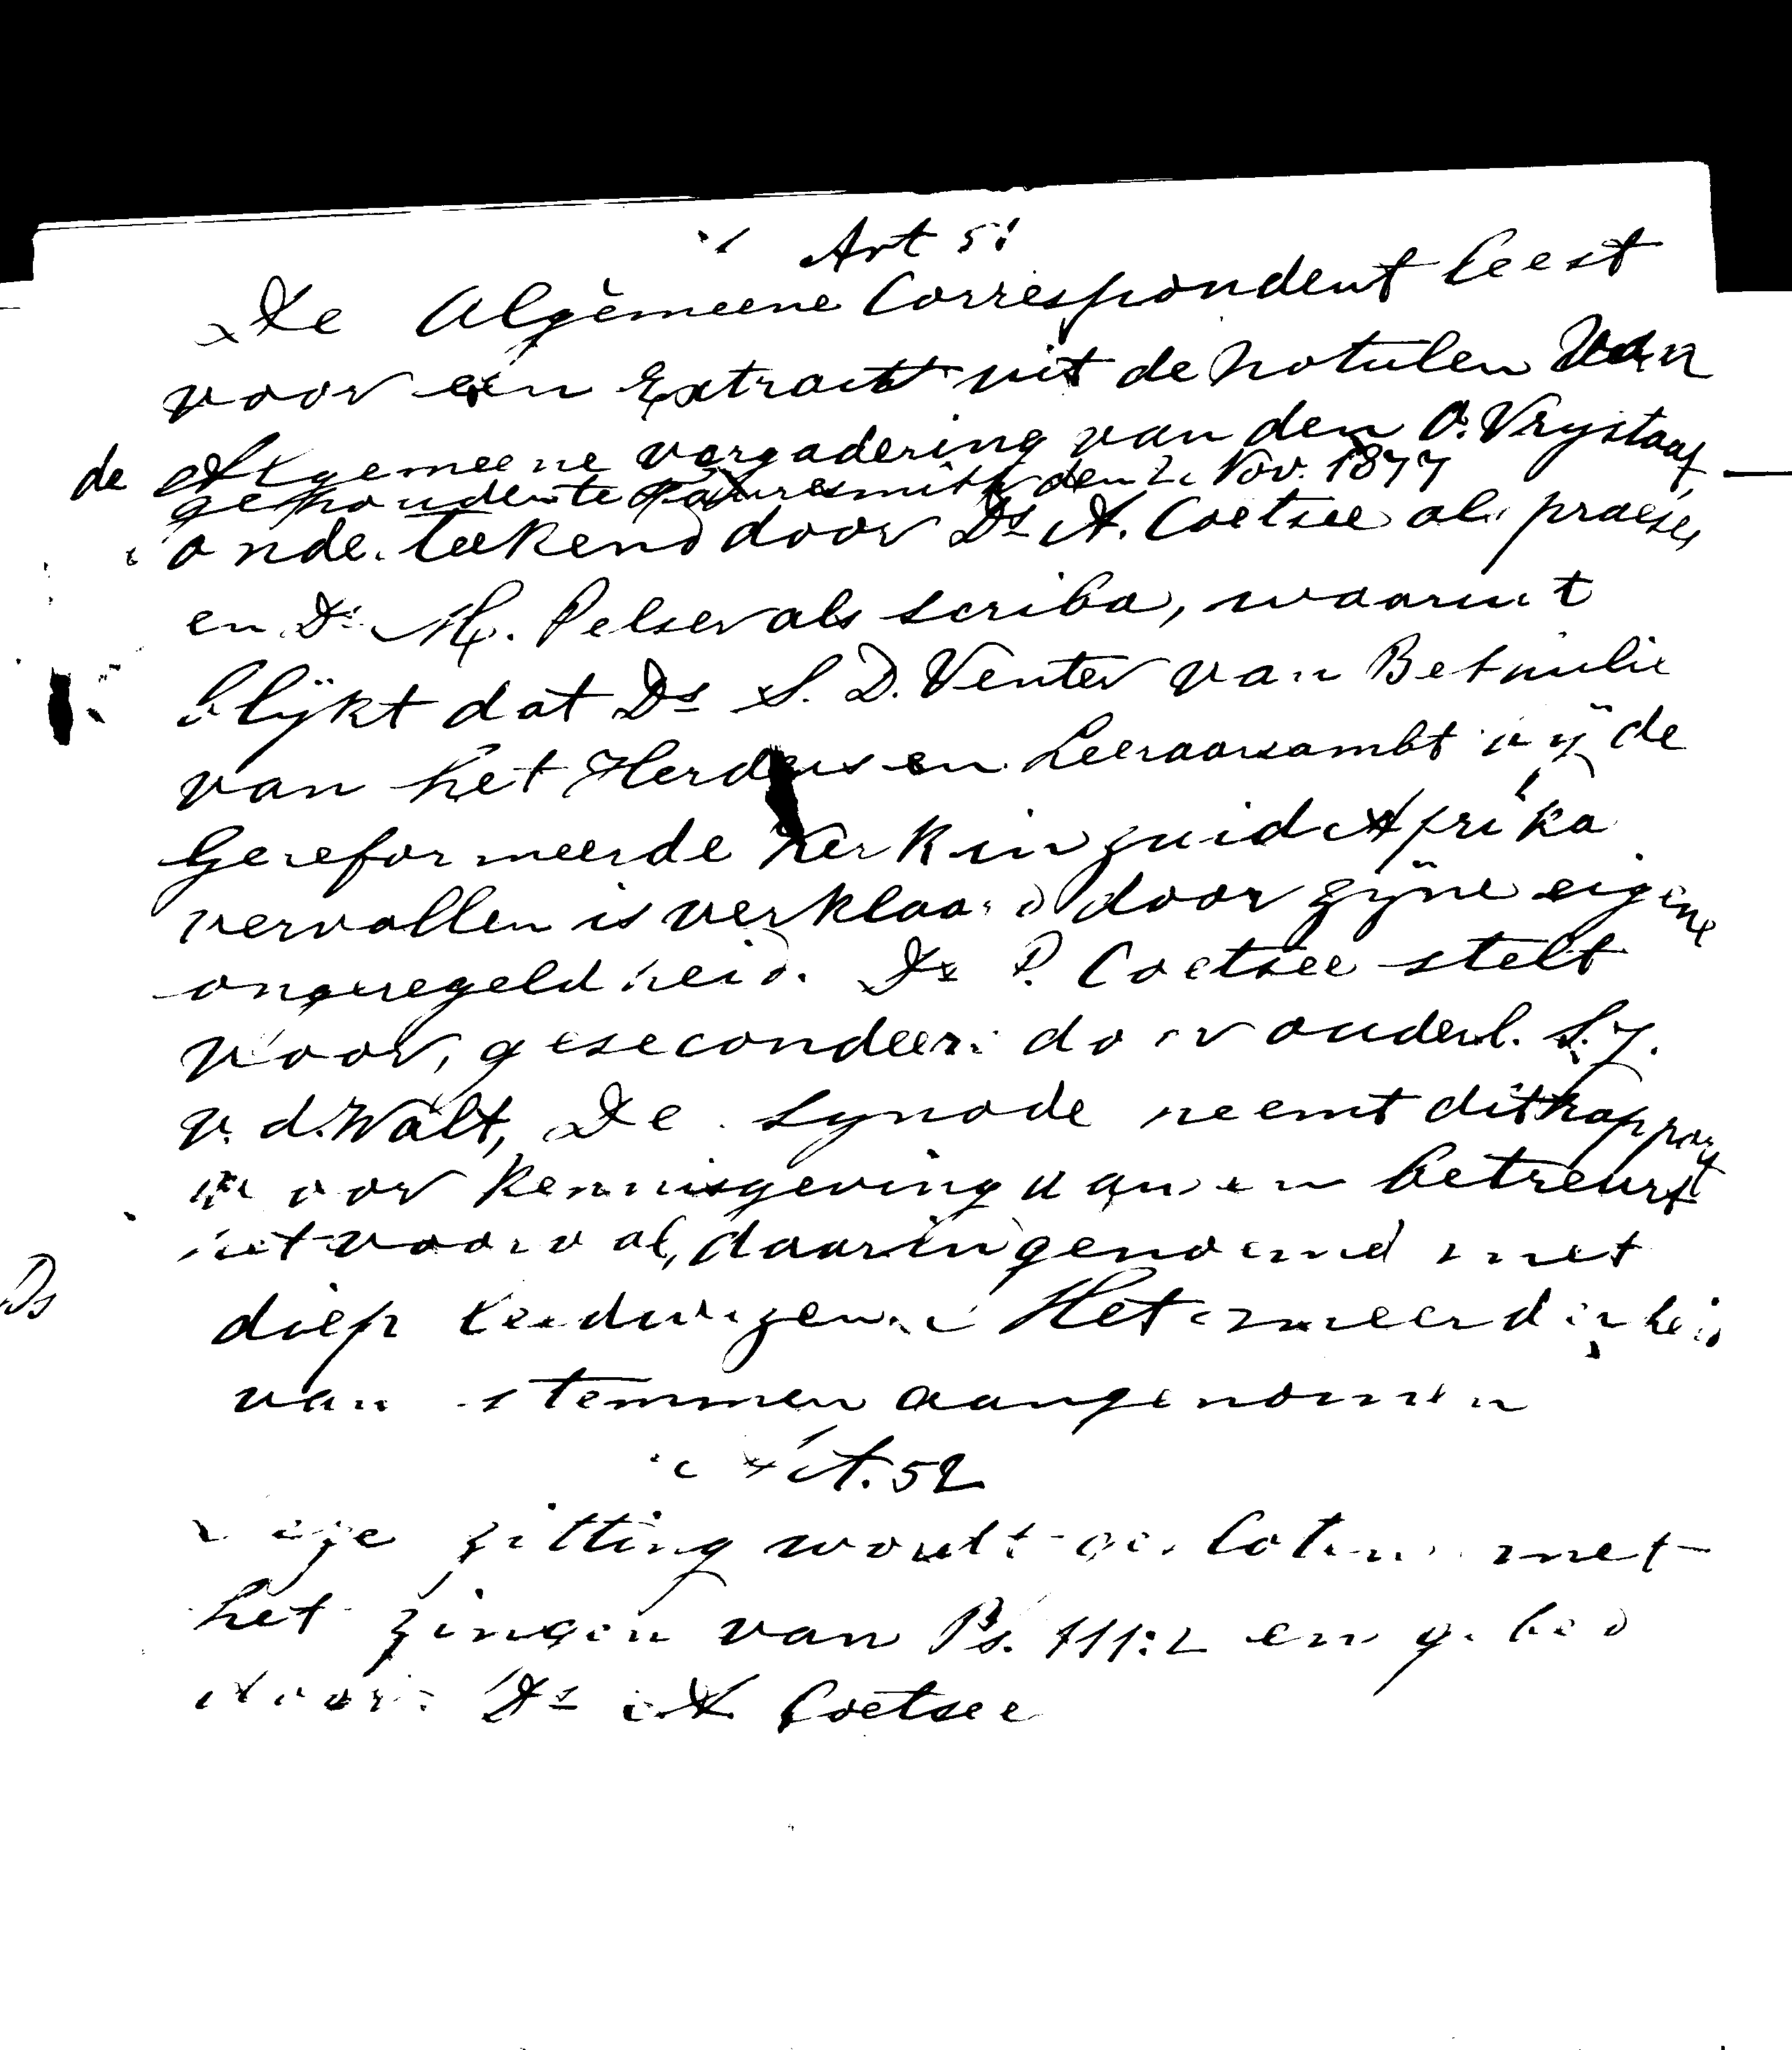 Art 51
De Algemeene Correspondent leest
voor een Extract uit de notulen van
de Algemeene vergadering van den O. Vrystaat
gehouden te Fauresmith den 2 Nov. 1877
onderteekend door Ds A. Coetsee als praeses
en Ds M. Pelser als scriba, waaruit
blijkt dat Ds S. D. Venter van Bethulie
van het Herders en Leeraarsambt bij de
Gereformeerde Kerk in Zuid Afrika
vervallen is verklaard door zijne eigene
ongeregeldheid. Ds P. Coetsee stelt
voor, gesecondeerd door ouderl. S. J.
v. d. Walt, De Synode neemt dit rapport
voor kennisgeving aan en betreurt
het voorval, daarin genoemd met
diep leedwezen. Met meerderheid
van stemmen aangenomen
Art. 52
Deze zitting wordt gesloten met
het zingen van Ps. 111:2 en gebed
door Ds A Coetsee
Ds